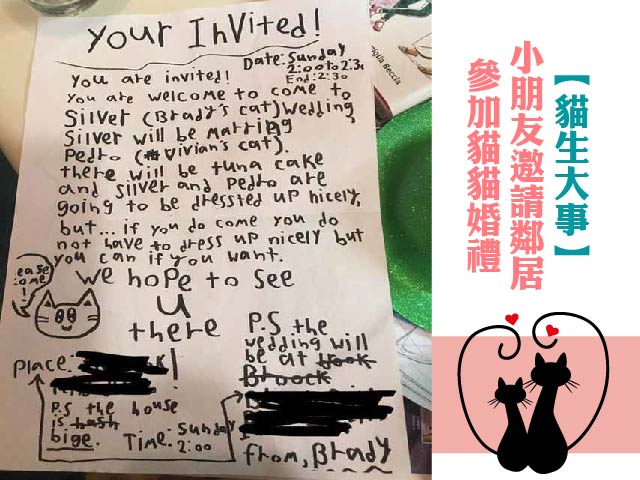 Your InVited!
Date: Sunday
2:00 to 2:30
End: 2:30
You are invited!
You are welcome to come to
Silver (Brady's cat) wedding
Silver will be marring
Pedro (Vivian's cat).
there will be tuna cake
and silver and Pedro are
going to be dressted up nicely,
but... if you do come you do
not have to dress up nicely but
you can if you want.
we hope to see
u
there
ease
ome!
Place:
P.S the house
is
bige.
Time: Sunday
2:00
P.S the
wedding will
be at
Broock
from, Brady
【貓生大事】
小朋友邀請鄰居
參加貓貓婚禮